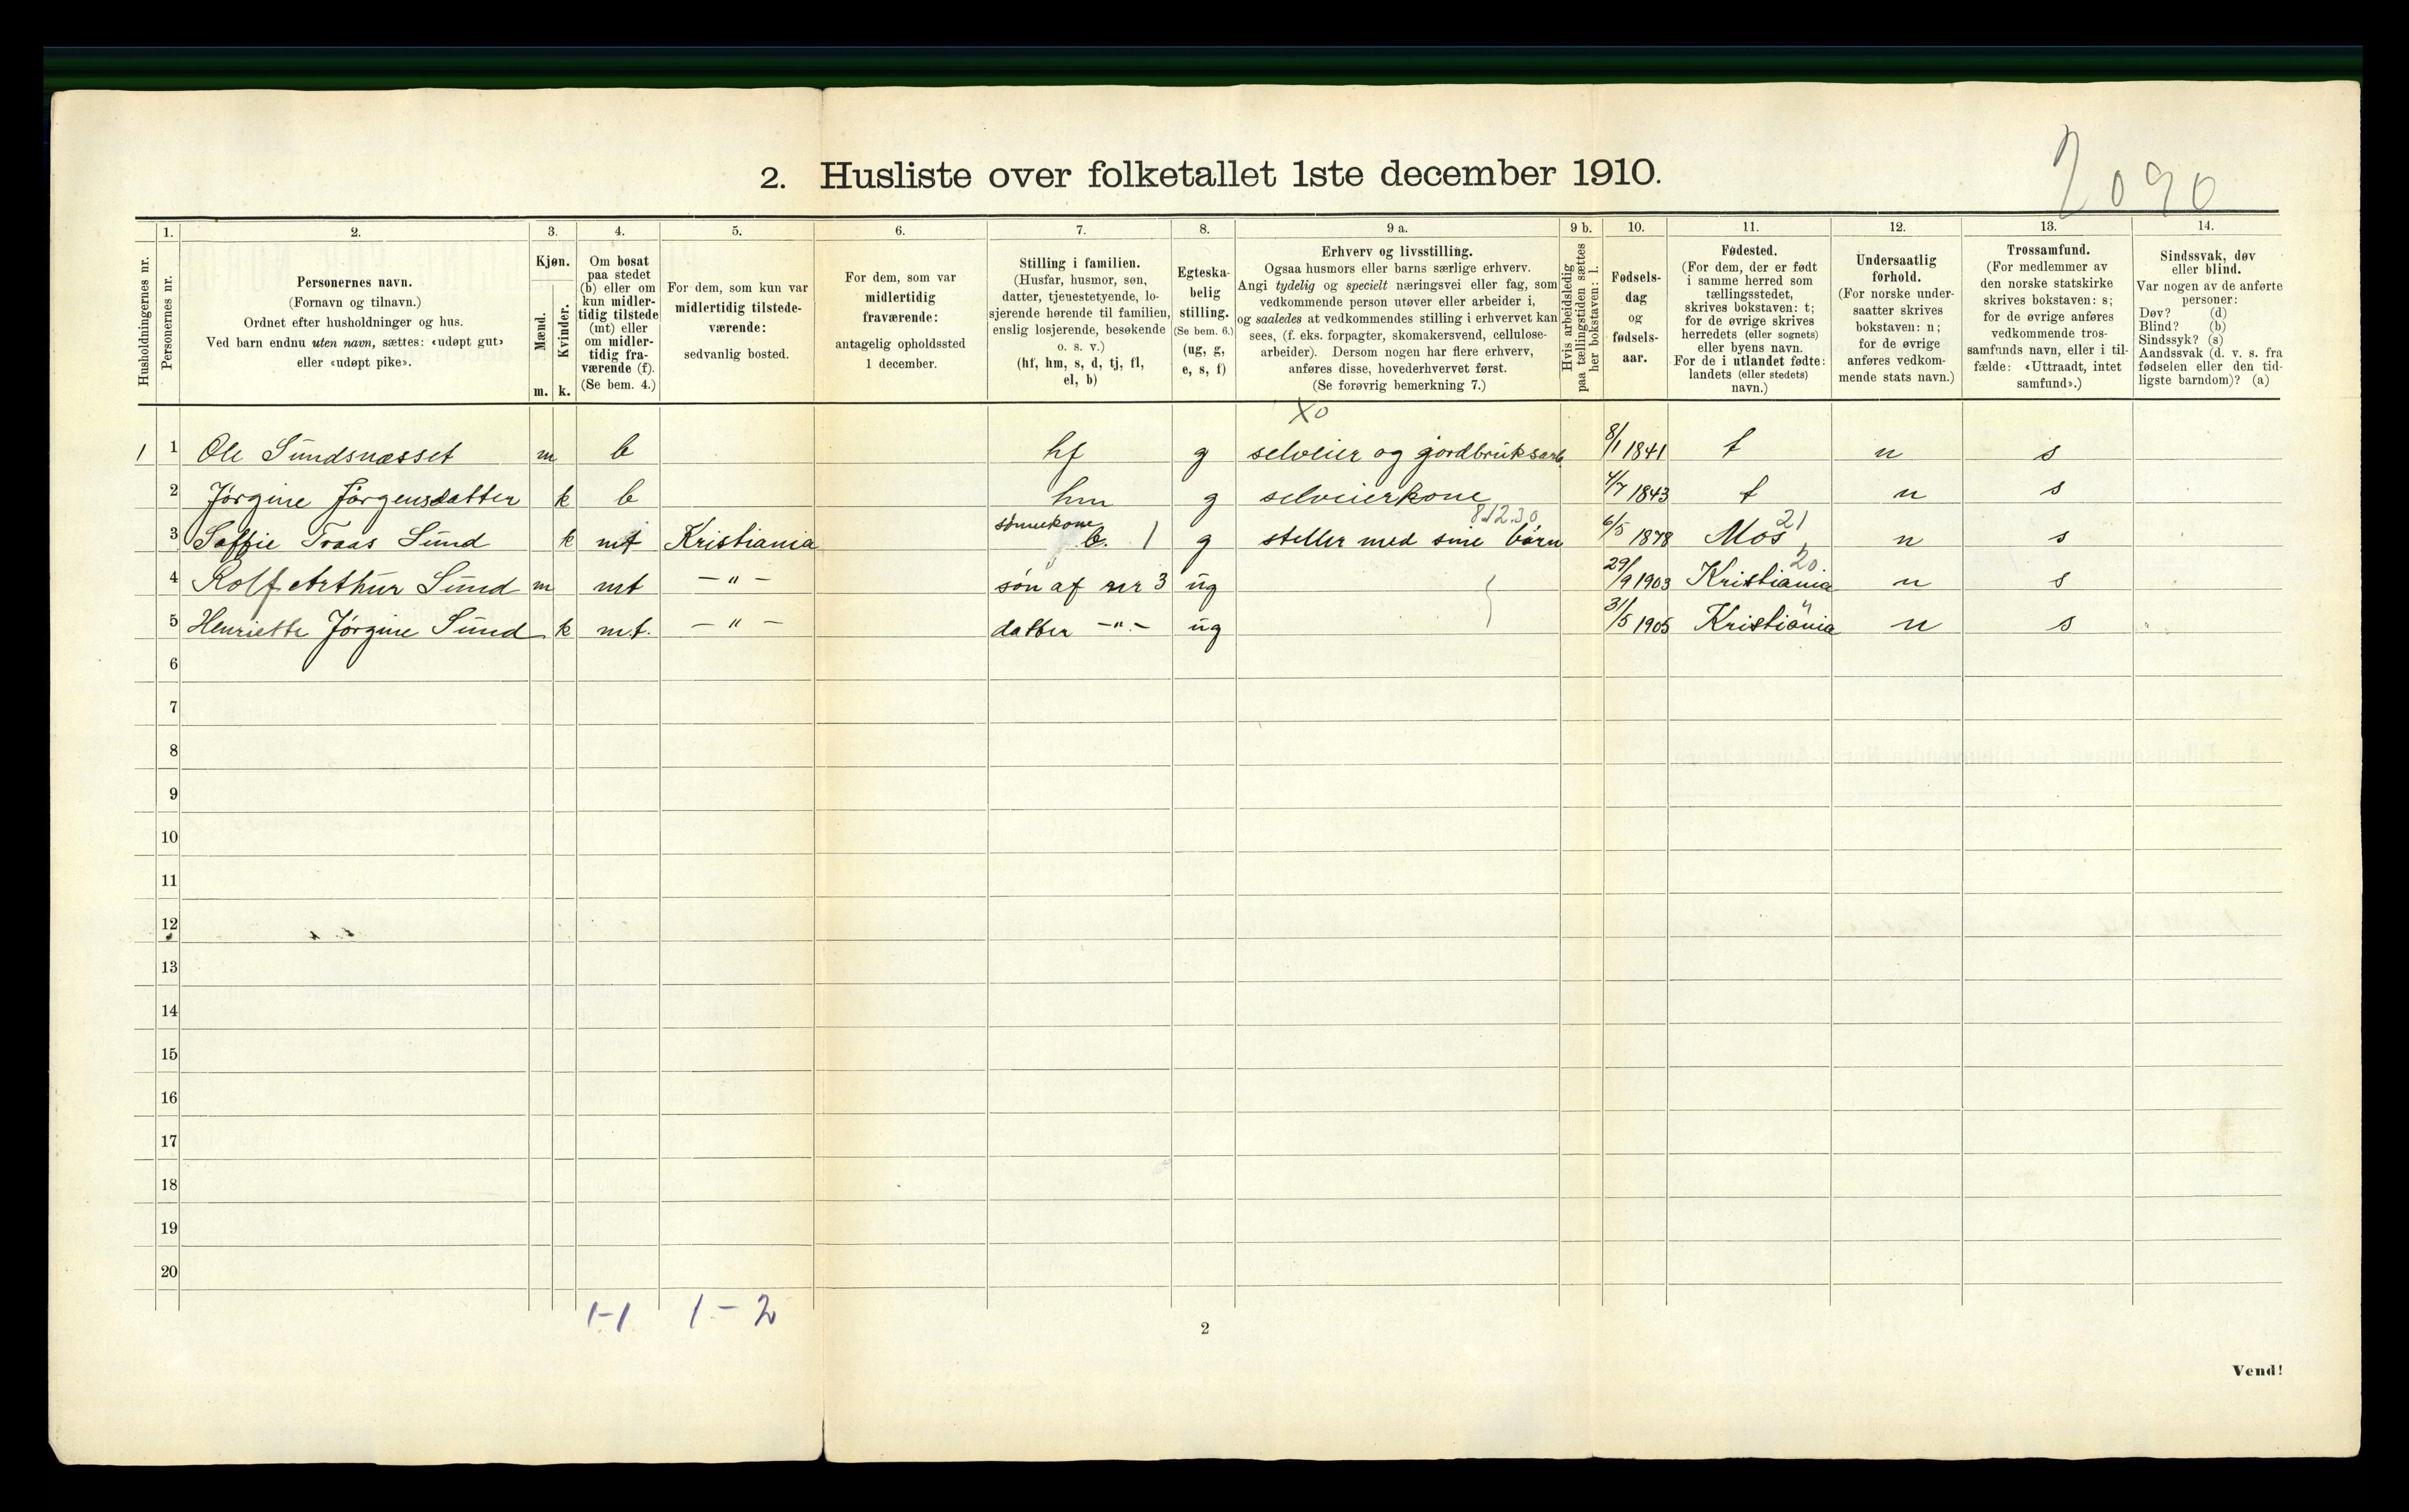 2090
2. Husliste over folketallet 1ste december 1910.
Husholdningernes nr.
1. Personernes nr.
2. Personernes navn.
(Fornavn og tilnavn.)
Ordnet efter husholdninger og hus.
Ved barn endnu uten navn, sættes: «udøpt gut»
eller «udøpt pike».
3. Kjøn.
Mænd. m.
Kvinder. k.
4. Om bosat
paa stedet
(b) eller om
kun midler-
tidig tilstede
(mt) eller
om midler-
tidig fra-
værende (f).
(Se bem. 4.)
5. For dem, som kun var
midlertidig tilstede-
værende:
sedvanlig bosted.
6. For dem, som var
midlertidig
fraværende:
antagelig opholdssted
1 december.
7. Stilling i familien.
(Husfar, husmor, søn,
datter, tjenestetyende, lo-
sjerende hørende til familien,
enslig losjerende, besøkende
o. s. v.)
(hf, hm, s, d, tj, fl,
el, b)
8. Egteska-
belig
stilling.
(Se bem. 6.)
(ug, g,
e, s, f)
9 a. Erhverv og livsstilling.
Ogsaa husmors eller barns særlige erhverv.
Angi tydelig og specielt næringsvei eller fag, som
vedkommende person utøver eller arbeider i,
og saaledes at vedkommendes stilling i erhvervet kan
sees, (f. eks. forpagter, skomakersvend, cellulose-
arbeider). Dersom nogen har flere erhverv,
anføres disse, hovederhvervet først.
(Se forøvrig bemerkning 7.)
9 b. Hvis arbeidsledig
paa tællingstiden sættes
her bokstaven: l.
10. Fødsels-
dag
og
fødsels-
aar.
11. Fødested.
(For dem, der er født
i samme herred som
tællingsstedet,
skrives bokstaven: t;
for de øvrige skrives
herredets (eller sognets)
eller byens navn.
For de i utlandet fødte:
landets (eller stedets)
navn.)
12. Undersaatlig
forhold.
(For norske under-
saatter skrives
bokstaven: n;
for de øvrige
anføres vedkom-
mende stats navn.)
13. Trossamfund.
(For medlemmer av
den norske statskirke
skrives bokstaven: s;
for de øvrige anføres
vedkommende tros-
samfunds navn, eller i til-
fælde: «Uttraadt, intet
samfund».)
14. Sindssvak, døv
eller blind.
Var nogen av de anførte
personer:
Døv? (d)
Blind? (b)
Sindssyk? (s)
Aandssvak (d. v. s. fra
fødselen eller den tid-
ligste barndom)? (a)
X0
1 1 Ole Sundsnæsset m b hf g selveier og jordbruksarb. 8/1 1841 t n s
2 Jørgine Jørgensdatter k b hm g selveierkone 4/7 1843 t n s
sønnekone 8.12.30 21
3 Soffie Traas Sund k mt Kristiania b. 1 g steller med sine børn 6/5 1878 Mos n s
20
4 Rolf Arthur Sund m mt — " — søn af nr 3 ug 29/9 1903 Kristiania n s
5 Henriette Jørgine Sund k mt. — " — datter — " — ug 31/5 1905 Kristiania n s
6
7
8
9
10
11
12
13
14
15
16
17
18
19
20
1-1 1-2
2
Vend!